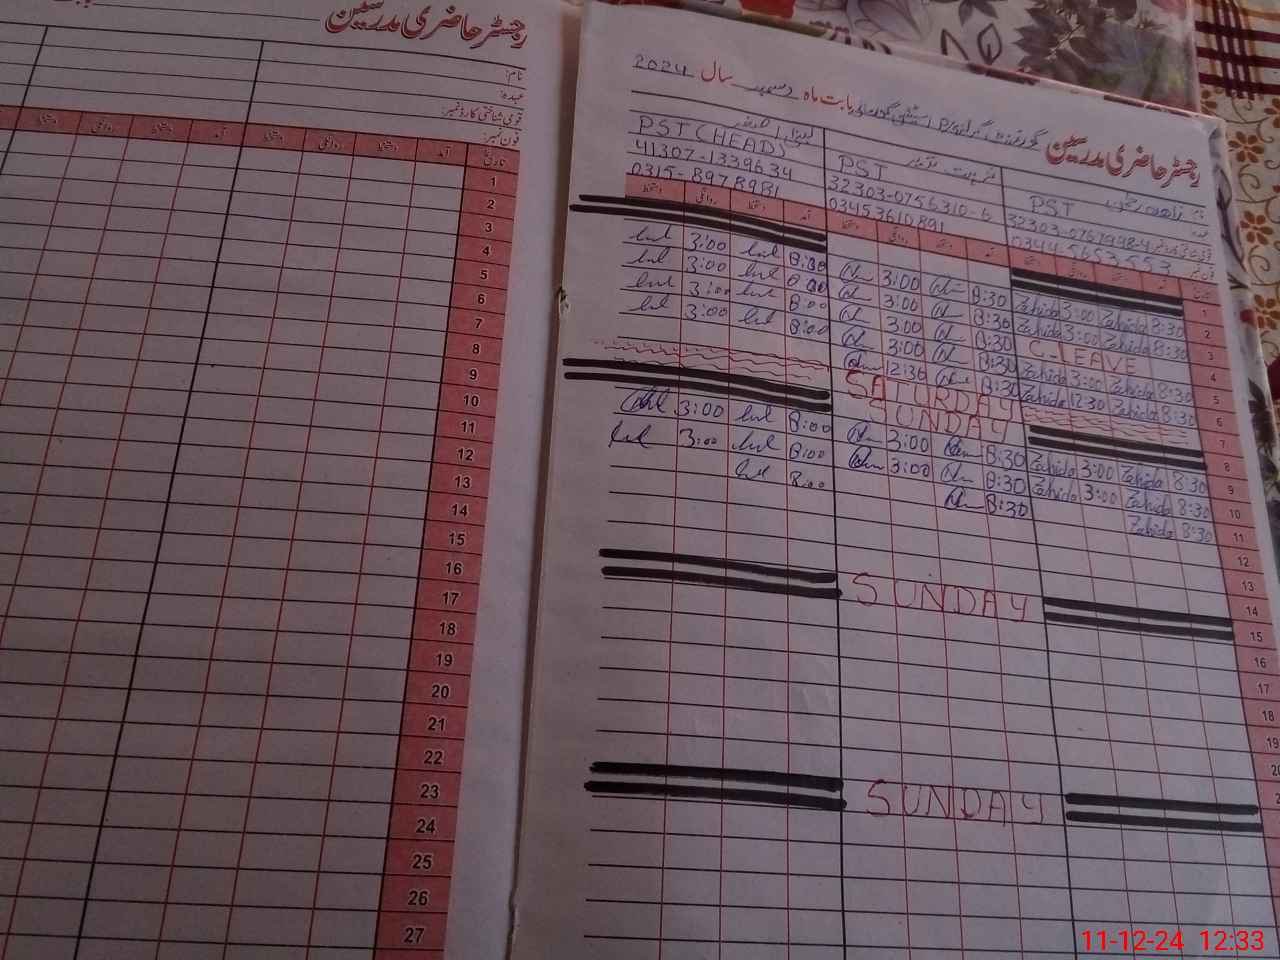 رجسٹر حاضری مدرسین
نام:
عہدہ:
قومی شناختی کارڈ نمبر:
فون نمبر:
تاریخ آمد دستخط روانگی دستخط آمد دستخط روانگی دستخط
1
2
3
4
5
6
7
8
9
10
11
12
13
14
15
16
17
18
19
20
21
22
23
24
25
26
27
رجسٹر حاضری مدرسین
بابت ماہ دسمبر سال 2024
PST PST PST (HEAD)
32303-0767998-4 32303-0756310-6 41307-1339634
0344-5653553 03453610891 0315-8978981
تاریخ آمد دستخط روانگی دستخط آمد دستخط روانگی دستخط آمد دستخط روانگی دستخط
1
2 8:30 Zahida 3:00 Zahida 8:30 3:00 8:00 3:00
3 8:30 Zahida 3:00 Zahida 8:30 3:00 8:00 3:00
4 C-LEAVE 8:30 3:00 8:00 3:00
5 8:30 Zahida 3:00 Zahida 8:30 3:00 8:00 3:00
6 8:30 Zahida 12:30 Zahida 8:30 12:30
7 SATURDAY
8 SUNDAY
9 8:30 Zahida 3:00 Zahida 8:30 3:00 8:00 3:00
10 8:30 Zahida 3:00 Zahida 8:30 3:00 8:00 3:00
11 8:30 Zahida 8:30 8:00
12
13
14
15 SUNDAY
16
17
18
19
20
SUNDAY
11-12-24 12:33